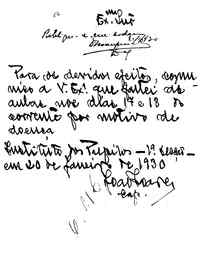 Exmo Snr
Para os devidos efeitos, comu
nico a V. Exª. que faltei ás
aulas nos dias 17 e 18 do
corrente por motivo de
doença
Instituto dos Pupilos – 1ª secção –
em 20 de janeiro de 1930